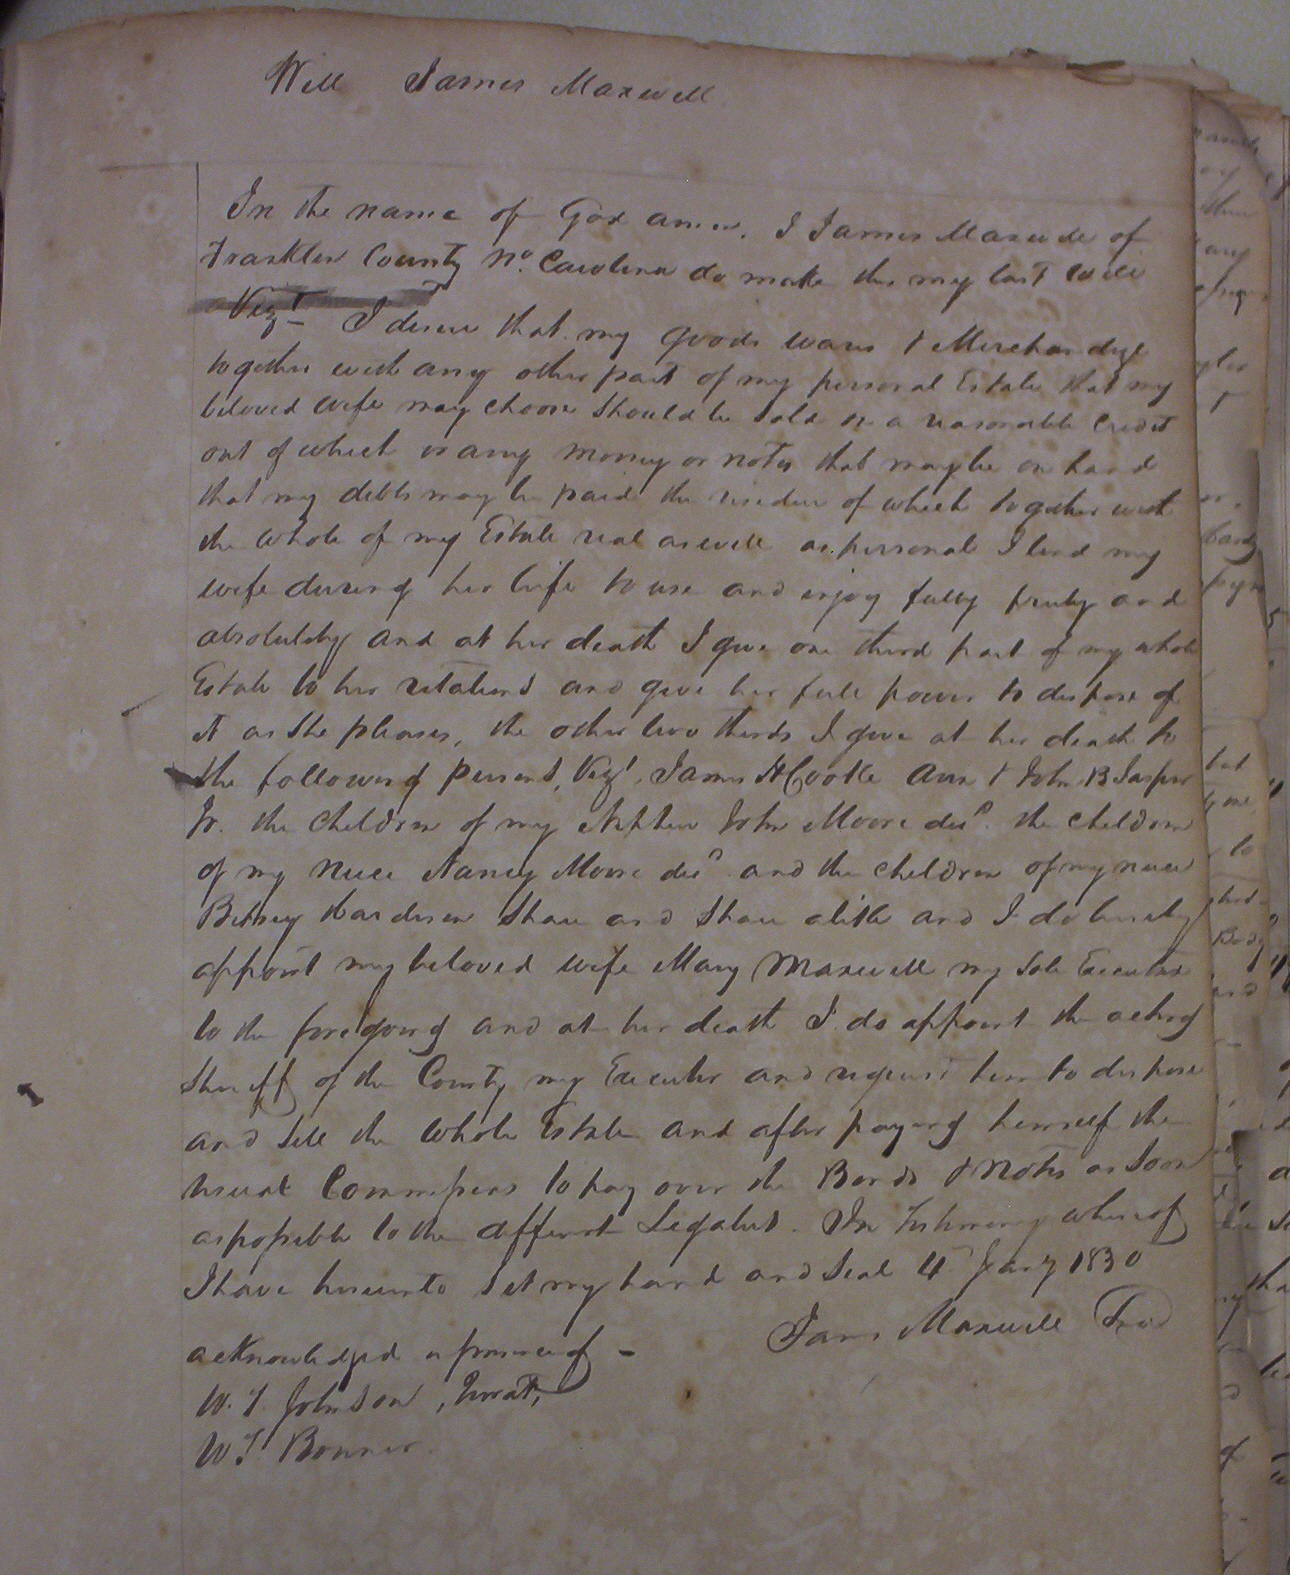 Will James Maxwell
In the name of God amen. I James Maxwell of
Franklin County No. Carolina do make this my last Will
Vizt I desire that my goods wares & Merchandize
together with any other part of my personal Estate that my
beloved wife may choose should be sold on a reasonable Credit
out of which or any money or notes that may be on hand
that my debts may be paid the residue of which together with
the whole of my Estate real as well as personal I lend my
wife during her life to use and enjoy fully freely and
absolutely and at her death I give one third part of my whole
Estate to her relations and give her full power to dispose of
it as she pleases, the other two thirds I give at her death to
the following persons, Vizt. James H Cooke Ann & John B Jasper
Jr. the children of my Nephew John Moore decd. the children
of my niece Nancy Moore decd and the children of my niece
Betsey Hardison share and share alike and I do hereby
appoint my beloved wife Mary Maxwell my sole Executrix
to the foregoing and at her death I do appoint the acting
Sheriff of the County my Executor and request him to dispose
and sell the whole Estate and after paying himself the
usual Commissions to pay over the Bonds & Notes as soon
as possible to the different Legatees. In testimony whereof
I have hereunto set my hand and seal 4 Jany 1830
James Maxwell Seal
acknowledged in presence of -
W. T. Johnson, Jurat,
W T Bonner